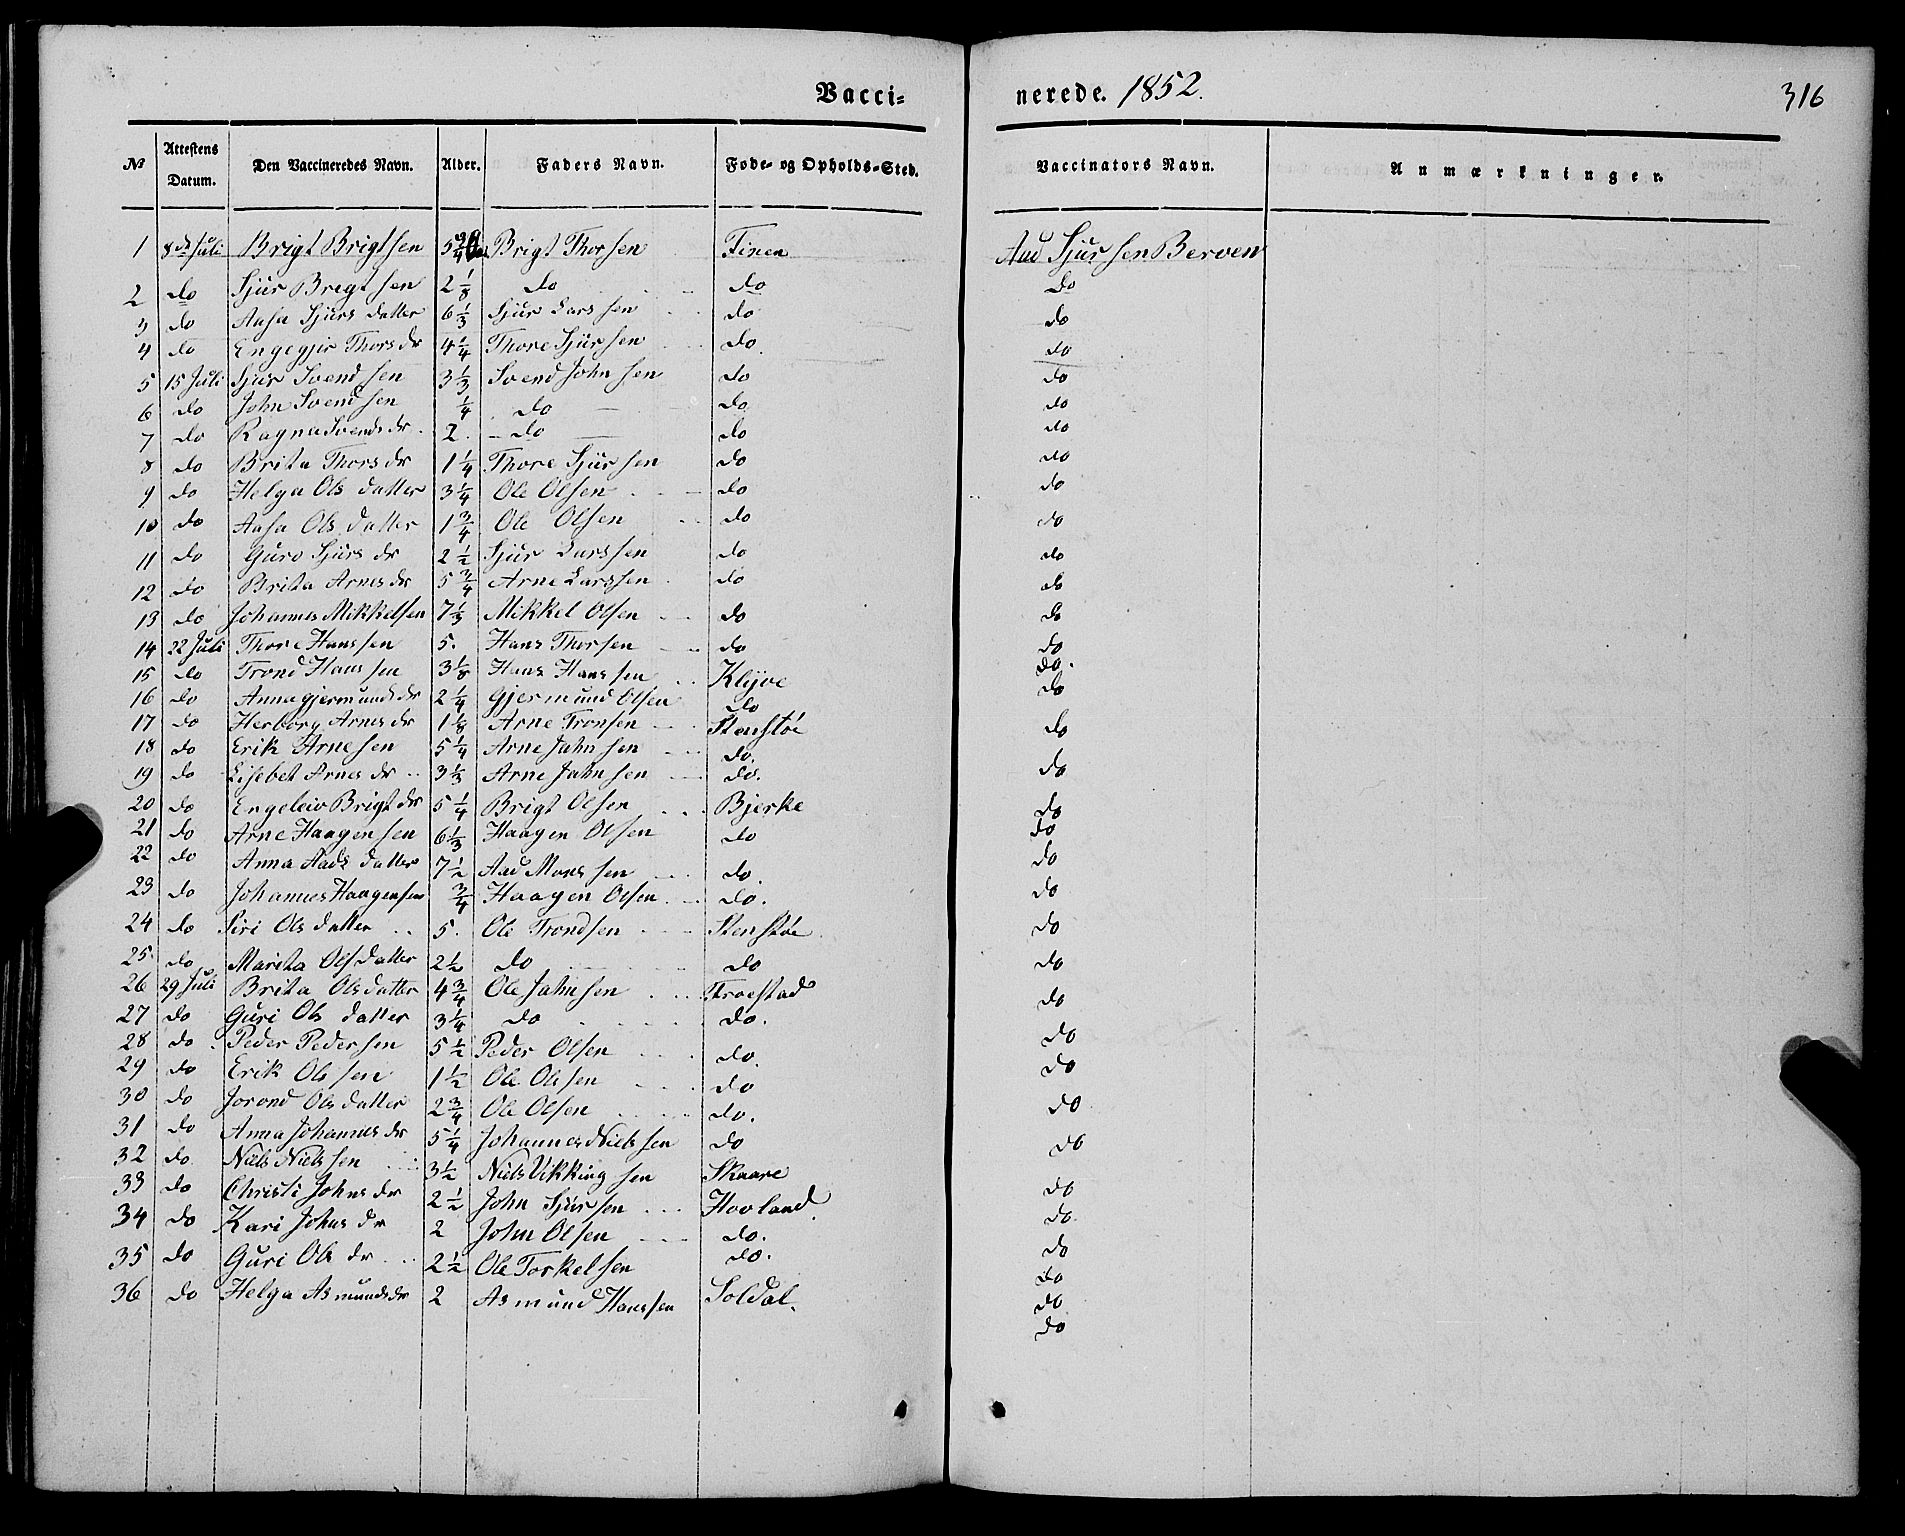 Vacci= nerede. 1852. 316
№ Attestens Datum. Den Vaccineredes Navn. Alder. Faders Navn. Føde- og Opholds-Sted. Vaccinators Navn. Anmærkninger.
1 8de Juli Brigt Brigtsen 5 3/4 Brigt Thorsen Tinen Aad Sjursen Berven
2 do Sjur Brigtsen 2 1/8 do do do
3 do Aasa Sjursdatter 6 1/3 Sjur Larssen do do
4 do Engegjer Thorsdr 4 1/4 Thore Sjursen do do
5 15 Juli Sjur Svendsen 3 1/3 Svend Johnsen do do
6 do John Svendsen 1/4 do do do
7 do Ragna Svendsdr. 2. do do do
8 do Brita Thorsdr 1 1/4 Thore Sjursen do do
9 do Helga Olsdatter 3 1/4 Ole Olsen do do
10 do Aasa Olsdatter 1 3/4 Ole Olsen do do
11 do Guro Sjursdr 2 1/2 Sjur Larssen do do
12 do Brita Arnesdr 5 3/4 Arne Larssen do do
13 do Johannes Mikkelsen 7 1/3 Mikkel Olsen do do
14 22 Juli Thore Hanssen 5. Hans Thorsen do do
15 do Trond Hanssen 3 1/8 Hans Hanssen Klyve do.
16 do Anna Gjermundsdr 2 1/4 Gjermund Olsen do do
17 do Herborg Arnesdr 1 1/8 Arne Tronsen Stenstøe do
18 do Erik Arnesen 5 1/4 Arne Jahnsen do. do
19 do Lisebet Arnesdr 3 1/3 Arne Jahnsen do. do
20 do Engeleiv Brigtdr 5 1/4 Brigt Olsen Bjerke do
21 do Arne Haagensen 6 1/3 Haagen Olsen do do
22 do Anna Aadsdatter 7 1/2 Aad Monssen do. do
23 do Johannes Haagensen 3/4 Haagen Olsen do. do
24 do Siri Olsdatter 5. Ole Trondsen Stenstøe do
25 do Marita Olsdatter 2 1/2 do do do
26 29 Juli Brita Olsdatter 4 3/4 Ole Jahnsen Troestad do
27 do Guri Olsdatter 3 1/4 do do. do
28 do Peder Pedersen 5 1/2 Peder Olsen do. do
29 do Erik Olssen 1 1/2 Ole Olssen do do
30 do Jorond Olsdatter 2 3/4 Ole Olsen do. do
31 do Anna Johannesdr 5 1/4 Johannes Nielssen do do
32 do Niels Nielssen 3 1/2 Niels Vikkingsen Skaare do
33 do Christi Johnsdr 2 1/2 John Sjursen Hovland do
34 do Kari Johnsdr 2 John Olsen do. do
35 do Guri Olsdr 2 1/2 Ole Torkelsen do. do
36 do Helga Asmundsdr 2 Asmund Hanssen Soldal. do
do